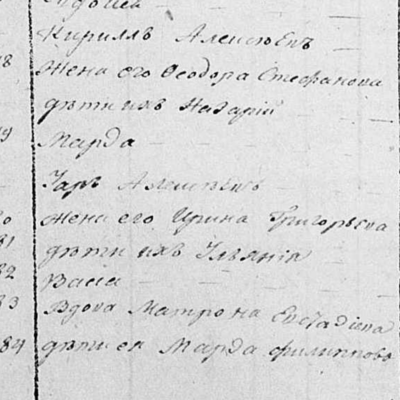 Кириллъ Алексѣевъ
78 Жена его Ѳеодора Стефанова
дѣти ихъ Назарій
79 Марѳа
Жена его Ирина Григорьева
81 дѣти ихъ
82 Васса
83 Вдова Матрона Евстафіева
84 дѣти ея Марѳа Филиппова